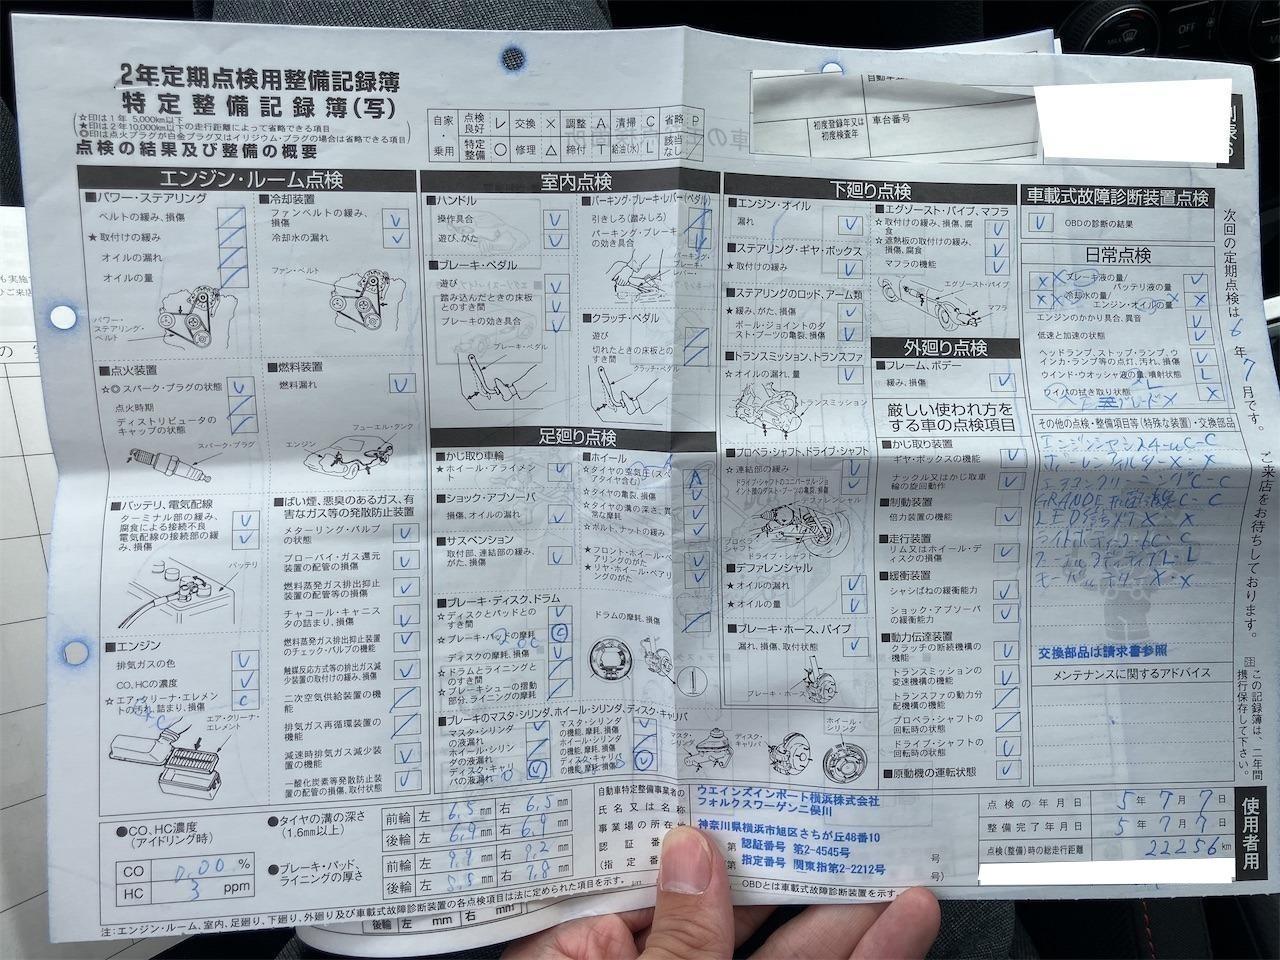 2年定期点検用整備記録簿
特定整備記録簿(写)
☆印は1年 5,000km以下
★印は2年10,000km以下の走行距離によって省略できる項目
◎印は点火プラグが白金プラグ又はイリジウム・プラグの場合は省略できる項目
点検の結果及び整備の概要
自家・乗用
点検良好 レ 交換 × 調整 A 清掃 C 省略 P
特定整備 ○ 修理 △ 締付 T 給油(水) L 該当なし ／
初度登録年又は初度検査年
車台番号
エンジン・ルーム点検
■パワー・ステアリング
ベルトの緩み、損傷
★取付けの緩み
オイルの漏れ
オイルの量
パワー・ステアリング・ベルト
■冷却装置
ファンベルトの緩み、損傷
冷却水の漏れ
ファン・ベルト
■点火装置
☆◎スパーク・プラグの状態
点火時期
ディストリビュータのキャップの状態
スパーク・プラグ
■燃料装置
燃料漏れ
フューエル・タンク
エンジン
■バッテリ、電気配線
ターミナル部の緩み、腐食による接続不良
電気配線の接続部の緩み、損傷
バッテリ
■エンジン
排気ガスの色
CO、HCの濃度
☆エア・クリーナ・エレメントの汚れ、詰まり、損傷
エア・クリーナ・エレメント
■ばい煙、悪臭のあるガス、有害なガス等の発散防止装置
メターリング・バルブの状態
ブローバイ・ガス還元装置の配管等の損傷
燃料蒸発ガス排出抑止装置の配管等の損傷
チャコール・キャニスタの詰まり、損傷
燃料蒸発ガス排出抑止装置のチェック・バルブの機能
触媒反応方式等の排出ガス減少装置の取付けの緩み、損傷
二次空気供給装置の機能
排気ガス再循環装置の機能
減速時排気ガス減少装置の機能
一酸化炭素等発散防止装置の配管の損傷、取付状態
室内点検
■ハンドル
操作具合
遊び、がた
■ブレーキ・ペダル
遊び
踏み込んだときの床板とのすき間
ブレーキの効き具合
ブレーキ・ペダル
■パーキング・ブレーキ・レバー(ペダル)
引きしろ(踏みしろ)
パーキング・ブレーキの効き具合
パーキング・ブレーキ・レバー
■クラッチ・ペダル
遊び
切れたときの床板とのすき間
クラッチ・ペダル
足廻り点検
■かじ取り車輪
★ホイール・アライメント
■ショック・アブソーバ
損傷、オイルの漏れ
■サスペンション
取付部、連結部の緩み、がた、損傷
■ブレーキ・ディスク、ドラム
☆ディスクとパッドとのすき間
☆ブレーキ・パッドの摩耗
ディスクの摩耗、損傷
☆ドラムとライニングとのすき間
☆ブレーキシューの摺動部分、ライニングの摩耗
■ホイール
☆タイヤの空気圧(スペアタイヤ含む)
☆タイヤの亀裂、損傷
☆タイヤの溝の深さ、異常な摩耗
★ボルト、ナットの緩み
★フロント・ホイール・ベアリングのがた
★リヤ・ホイール・ベアリングのがた
ドラムの摩耗、損傷
■ブレーキのマスタ・シリンダ、ホイール・シリンダ、ディスク・キャリパ
マスタ・シリンダの液漏れ
ホイール・シリンダの液漏れ
ディスク・キャリパの液漏れ
マスタ・シリンダの機能、摩耗、損傷
ホイール・シリンダの機能、摩耗、損傷
ディスク・キャリパの機能、摩耗、損傷
マスタ・シリンダ
ディスク・キャリパ
ホイール・シリンダ
下廻り点検
■エンジン・オイル
漏れ
■ステアリング・ギヤ・ボックス
★取付けの緩み
■ステアリングのロッド、アーム類
★緩み、がた、損傷
ボール・ジョイントのダスト・ブーツの亀裂、損傷
■トランスミッション、トランスファ
☆オイルの漏れ、量
トランスミッション
■プロペラ・シャフト、ドライブ・シャフト
★連結部の緩み
ドライブ・シャフトのユニバーサル・ジョイント部のダスト・ブーツの亀裂、損傷
デファレンシャル
プロペラ・シャフト
ドライブ・シャフト
■デファレンシャル
★オイルの漏れ
★オイルの量
■ブレーキ・ホース、パイプ
漏れ、損傷、取付状態
ブレーキ・ホース
■エグゾースト・パイプ、マフラ
☆取付けの緩み、損傷、腐食
☆遮熱板の取付けの緩み、損傷、腐食
マフラの機能
エグゾースト・パイプ
マフラ
外廻り点検
■フレーム、ボデー
緩み、損傷
厳しい使われ方をする車の点検項目
■かじ取り装置
ギヤ・ボックスの機能
ナックル又はかじ取車輪の旋回動作
■制動装置
倍力装置の機能
■走行装置
リム又はホイール・ディスクの損傷
■緩衝装置
シャシばねの緩衝能力
ショック・アブソーバの緩衝能力
■動力伝達装置
クラッチの断続機構の機能
トランスミッションの変速機構の機能
トランスファの動力分配機構の機能
プロペラ・シャフトの回転時の状態
ドライブ・シャフトの回転時の状態
■原動機の運転状態
車載式故障診断装置点検
OBDの診断の結果
日常点検
ブレーキ液の量/バッテリ液の量
冷却水の量/エンジン・オイルの量
エンジンのかかり具合、異音
低速と加速の状態
ヘッドランプ、ストップ・ランプ、ウインカ・ランプ等の点灯、汚れ、損傷
ウインド・ウオッシャ液の量、噴射状態
ワイパの拭き取り状態
その他の点検・整備項目等(特殊な装置)・交換部品
交換部品は請求書参照
メンテナンスに関するアドバイス
次回の定期点検は 6 年 7 月です。ご来店をお待ちしております。
注 この記録簿は、二年間携行保存して下さい。
●CO、HC濃度(アイドリング時)
CO 0.00 %
HC 3 ppm
●タイヤの溝の深さ(1.6mm以上)
前輪 左 6.5 mm 右 6.5 mm
後輪 左 6.9 mm 右 6.9 mm
●ブレーキ・パッド、ライニングの厚さ
前輪 左 9.2 mm 右 9.2 mm
後輪 左 8.8 mm 右 7.8 mm
自動車特定整備事業者の
氏名又は名称
事業場の所在地
認証番号
(指定番号
ウエインズインポート横浜株式会社
フォルクスワーゲン二俣川
神奈川県横浜市旭区さちが丘48番10
第 認証番号 第2-4545号 号
第 指定番号 関東指第2-2212号 号)
点検の年月日 5年 7月 7日
整備完了年月日 5年 7月 7日
点検(整備)時の総走行距離 22256 km
使用者用
注:エンジン・ルーム、室内、足廻り、下廻り、外廻り及び車載式故障診断装置の各点検項目は法に定められた項目を示す。
OBDとは車載式故障診断装置を示す。
後輪 左 mm 右 mm